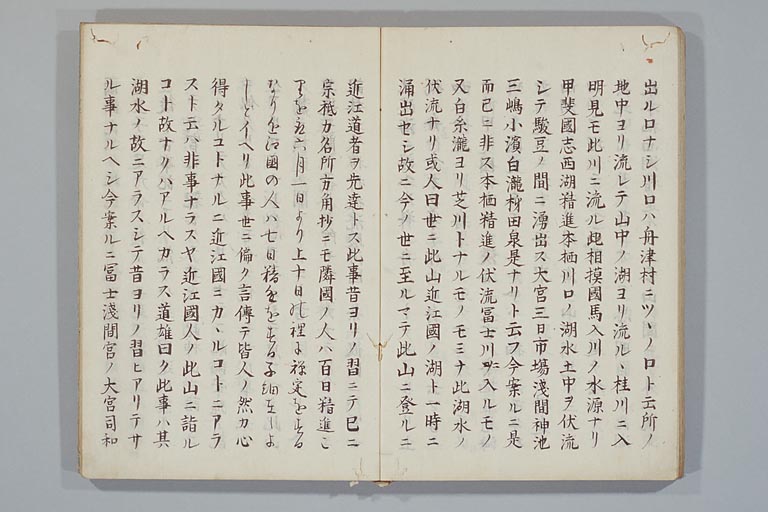 出ル口ナシ川口ハ舟津村ニツヽノ口ト云所ノ
地中ヨリ流レテ山中ノ湖ヨリ流ルヽ桂川ニ入
明見モ此川ニ流ル此相摸國馬入川ノ水源ナリ
甲斐國志西湖精進本栖川口ノ湖水土中ヲ伏流
シテ駿豆ノ間ニ湧出ス大宮三日市場淺間神池
三嶋小濱白瀧柿田泉是ナリト云フ今案ルニ是
而已ニ非ス本栖精進ノ伏流冨士川ニ入ルモノ
又白糸瀧ヨリ芝川トナルモノモミナ此湖水ノ
涌出セシ故ニ今ノ世ニ至ルマテ此山ニ登ルニ
伏流ナリ或人曰世ニ此山近江國ノ湖ト一時ニ
近江道者ヲ先達トス此事昔ヨリノ習ニテ已ニ
宗祗カ名所方角抄ニモ隣國ノ人ハ百日精進こ
りをし六月一日より上十日の裡に禅定をする
なり近江國の人ハ七日精進をする子細在しよ
しとイヘリ此事世ニ偏ク言傳テ皆人ノ然カ心
得タルコトナルニ近江國ニカヽルコトニアラ
スト云ハ非事ナラスヤ近江國人ノ此山ニ詣ル
コト故ナクハアルヘカラス道雄曰ク此事ハ其
湖水ノ故ニアラスシテ昔ヨリノ習ヒアリテサ
ル事ナルヘシ今案ルニ冨士淺間宮ノ大宮司和